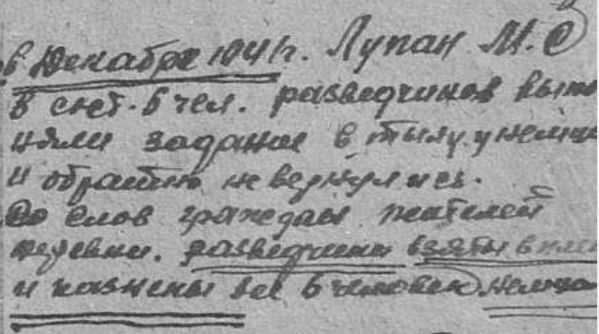 в Декабре 1941г. Лупан М.С
в сост. 6 чел. разведчиков выпо
няли задание в тылу у немце
и обратно не вернулись.
Со слов граждан жителей
деревни. разведчики взяты в пле
и казнены все 6 человек немца